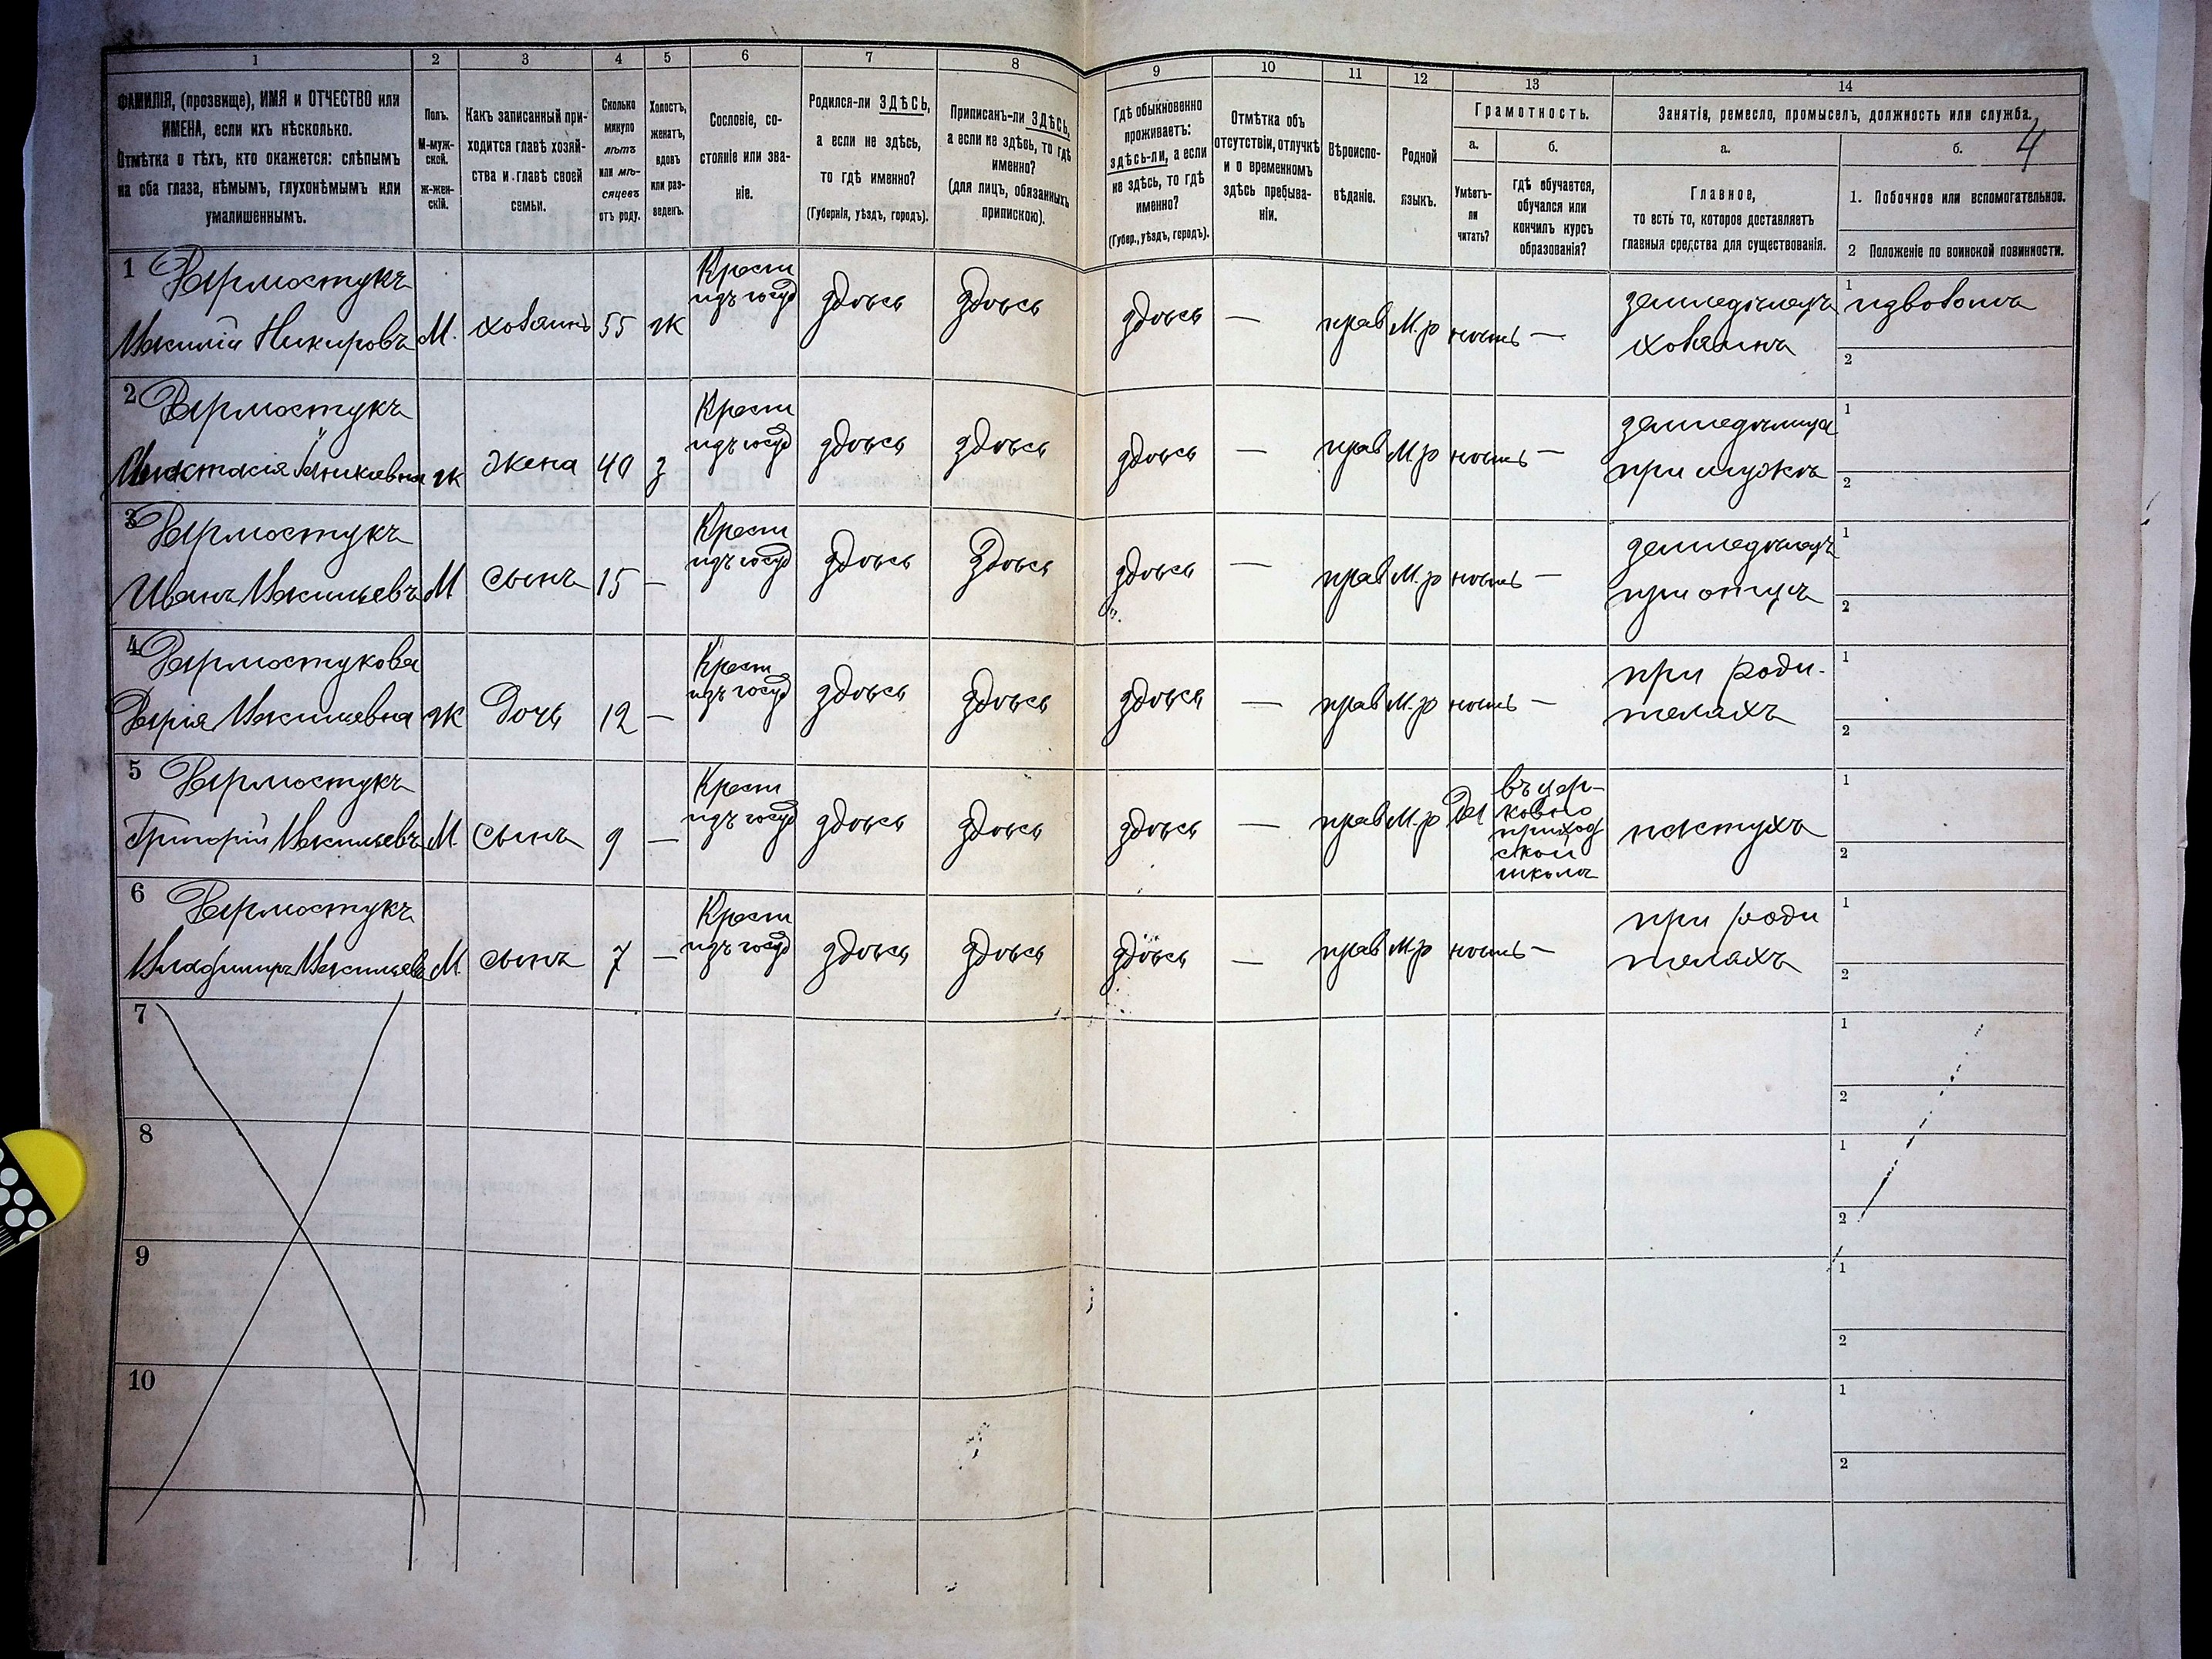 1 2 3 4 5 6 7 8 9 10 11 12 13 14
ФАМИЛІЯ, (прозвище), ИМЯ и ОТЧЕСТВО или
ИМЕНА, если ихъ нѣсколько.
Отмѣтка о тѣхъ, кто окажется: слѣпымъ
на оба глаза, нѣмымъ, глухонѣмымъ или
умалишеннымъ.
Полъ.
М-муж-
ской.
ж-жен-
скій.
Какъ записанный при-
ходится главѣ хозяй-
ства и главѣ своей
семьи.
Сколько
минуло
лѣтъ
или мѣ-
сяцевъ
отъ роду.
Холостъ,
женатъ,
вдовъ
или раз-
веденъ.
Сословіе, со-
стояніе или зва-
ніе.
Родился-ли ЗДѢСЬ,
а если не здѣсь,
то гдѣ именно?
(Губернія, уѣздъ, городъ).
Приписанъ-ли ЗДѢСЬ,
а если не здѣсь, то гдѣ
именно?
(для лицъ, обязанныхъ
припискою).
Гдѣ обыкновенно
проживаетъ:
здѣсь-ли, а если
не здѣсь, то гдѣ
именно?
(Губер., уѣздъ, городъ).
Отмѣтка объ
отсутствіи, отлучкѣ
и о временномъ
здѣсь пребыва-
ніи.
Вѣроиспо-
вѣданіе.
Родной
языкъ.
Грамотность.
а.
Умѣетъ-
ли
читать?
б.
гдѣ обучается,
обучался или
кончилъ курсъ
образованія?
Занятія, ремесло, промыселъ, должность или служба.
4
а.
Главное,
то есть то, которое доставляетъ
главныя средства для существованія.
б.
1. Побочное или вспомогательное.
2 Положеніе по воинской повинности.
1
Василій М. хозяинъ 55 ж
Крест
изъ госуд
здѣсь здѣсь здѣсь — прав М.р нѣтъ —
земледѣлецъ
хозяинъ
1 извозомъ
2
2
ж жена 40 з
Крест
изъ госуд
здѣсь здѣсь здѣсь — прав М.р нѣтъ —
земледѣлица
при мужѣ
1
2
3
Иванъ Васильевъ М сынъ 15 —
Крест
изъ госуд
здѣсь здѣсь здѣсь — прав М.р нѣтъ —
земледѣлецъ
при отцѣ
1
2
4
Дарія Васильевна ж дочь 12 —
Крест
изъ госуд
здѣсь здѣсь здѣсь — прав М.р нѣтъ —
при роди-
теляхъ
1
2
5
Григорій Васильевъ М. сынъ 9 —
Крест
изъ госуд
здѣсь здѣсь здѣсь — прав М.р Да
въ цер-
ковно
приход
ской
школѣ
пастухъ
1
2
6
Владимиръ Васильевъ М. сынъ 7 —
Крест
изъ госуд
здѣсь здѣсь здѣсь — прав М.р нѣтъ —
при роди
теляхъ
1
2
7
1
2
8
1
2
9
1
2
10
1
2